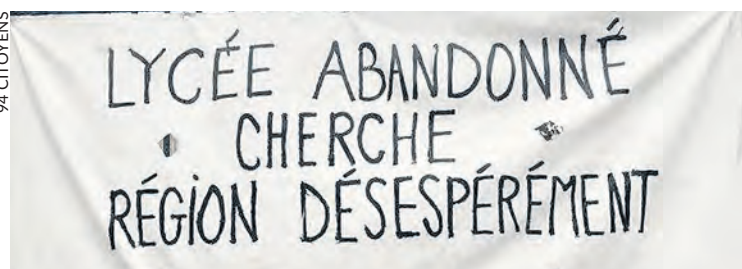 94 CITOYENS
LYCÉE ABANDONNÉ
CHERCHE
RÉGION DÉSESPÉRÉMENT